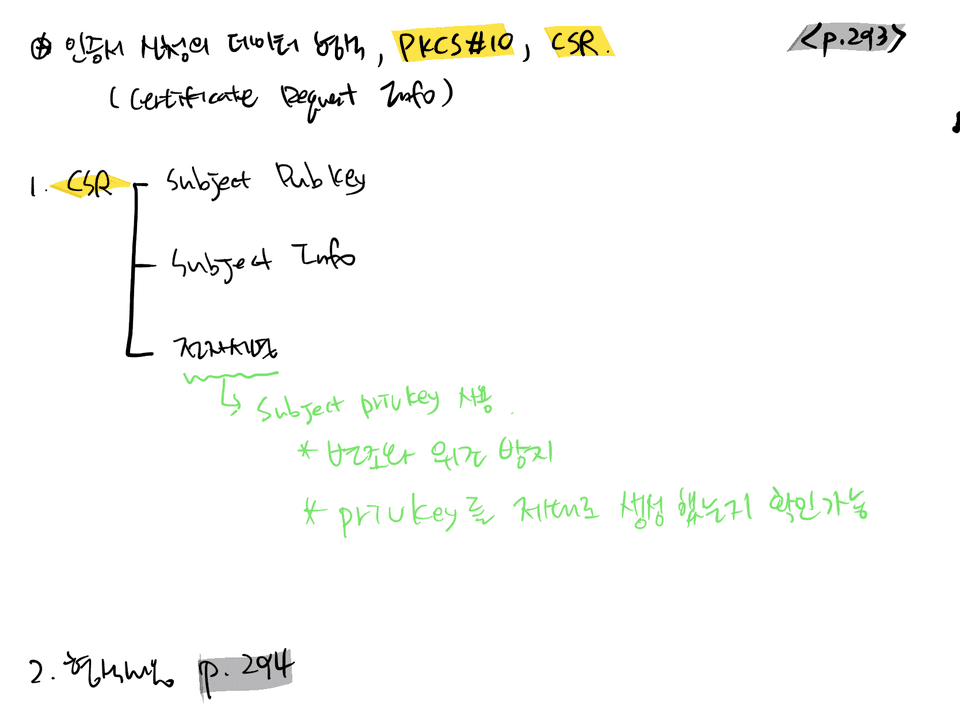 ⊕ 인증서 신청의 데이터 형식, PKCS#10, CSR. <p.293>
(Certificate Request Info)
1. CSR Subject PubKey
Subject Info
전자서명
↳ Subject privkey 사용.
* 변조와 위조 방지
* privkey를 제대로 생성했는지 확인가능
2. p.294